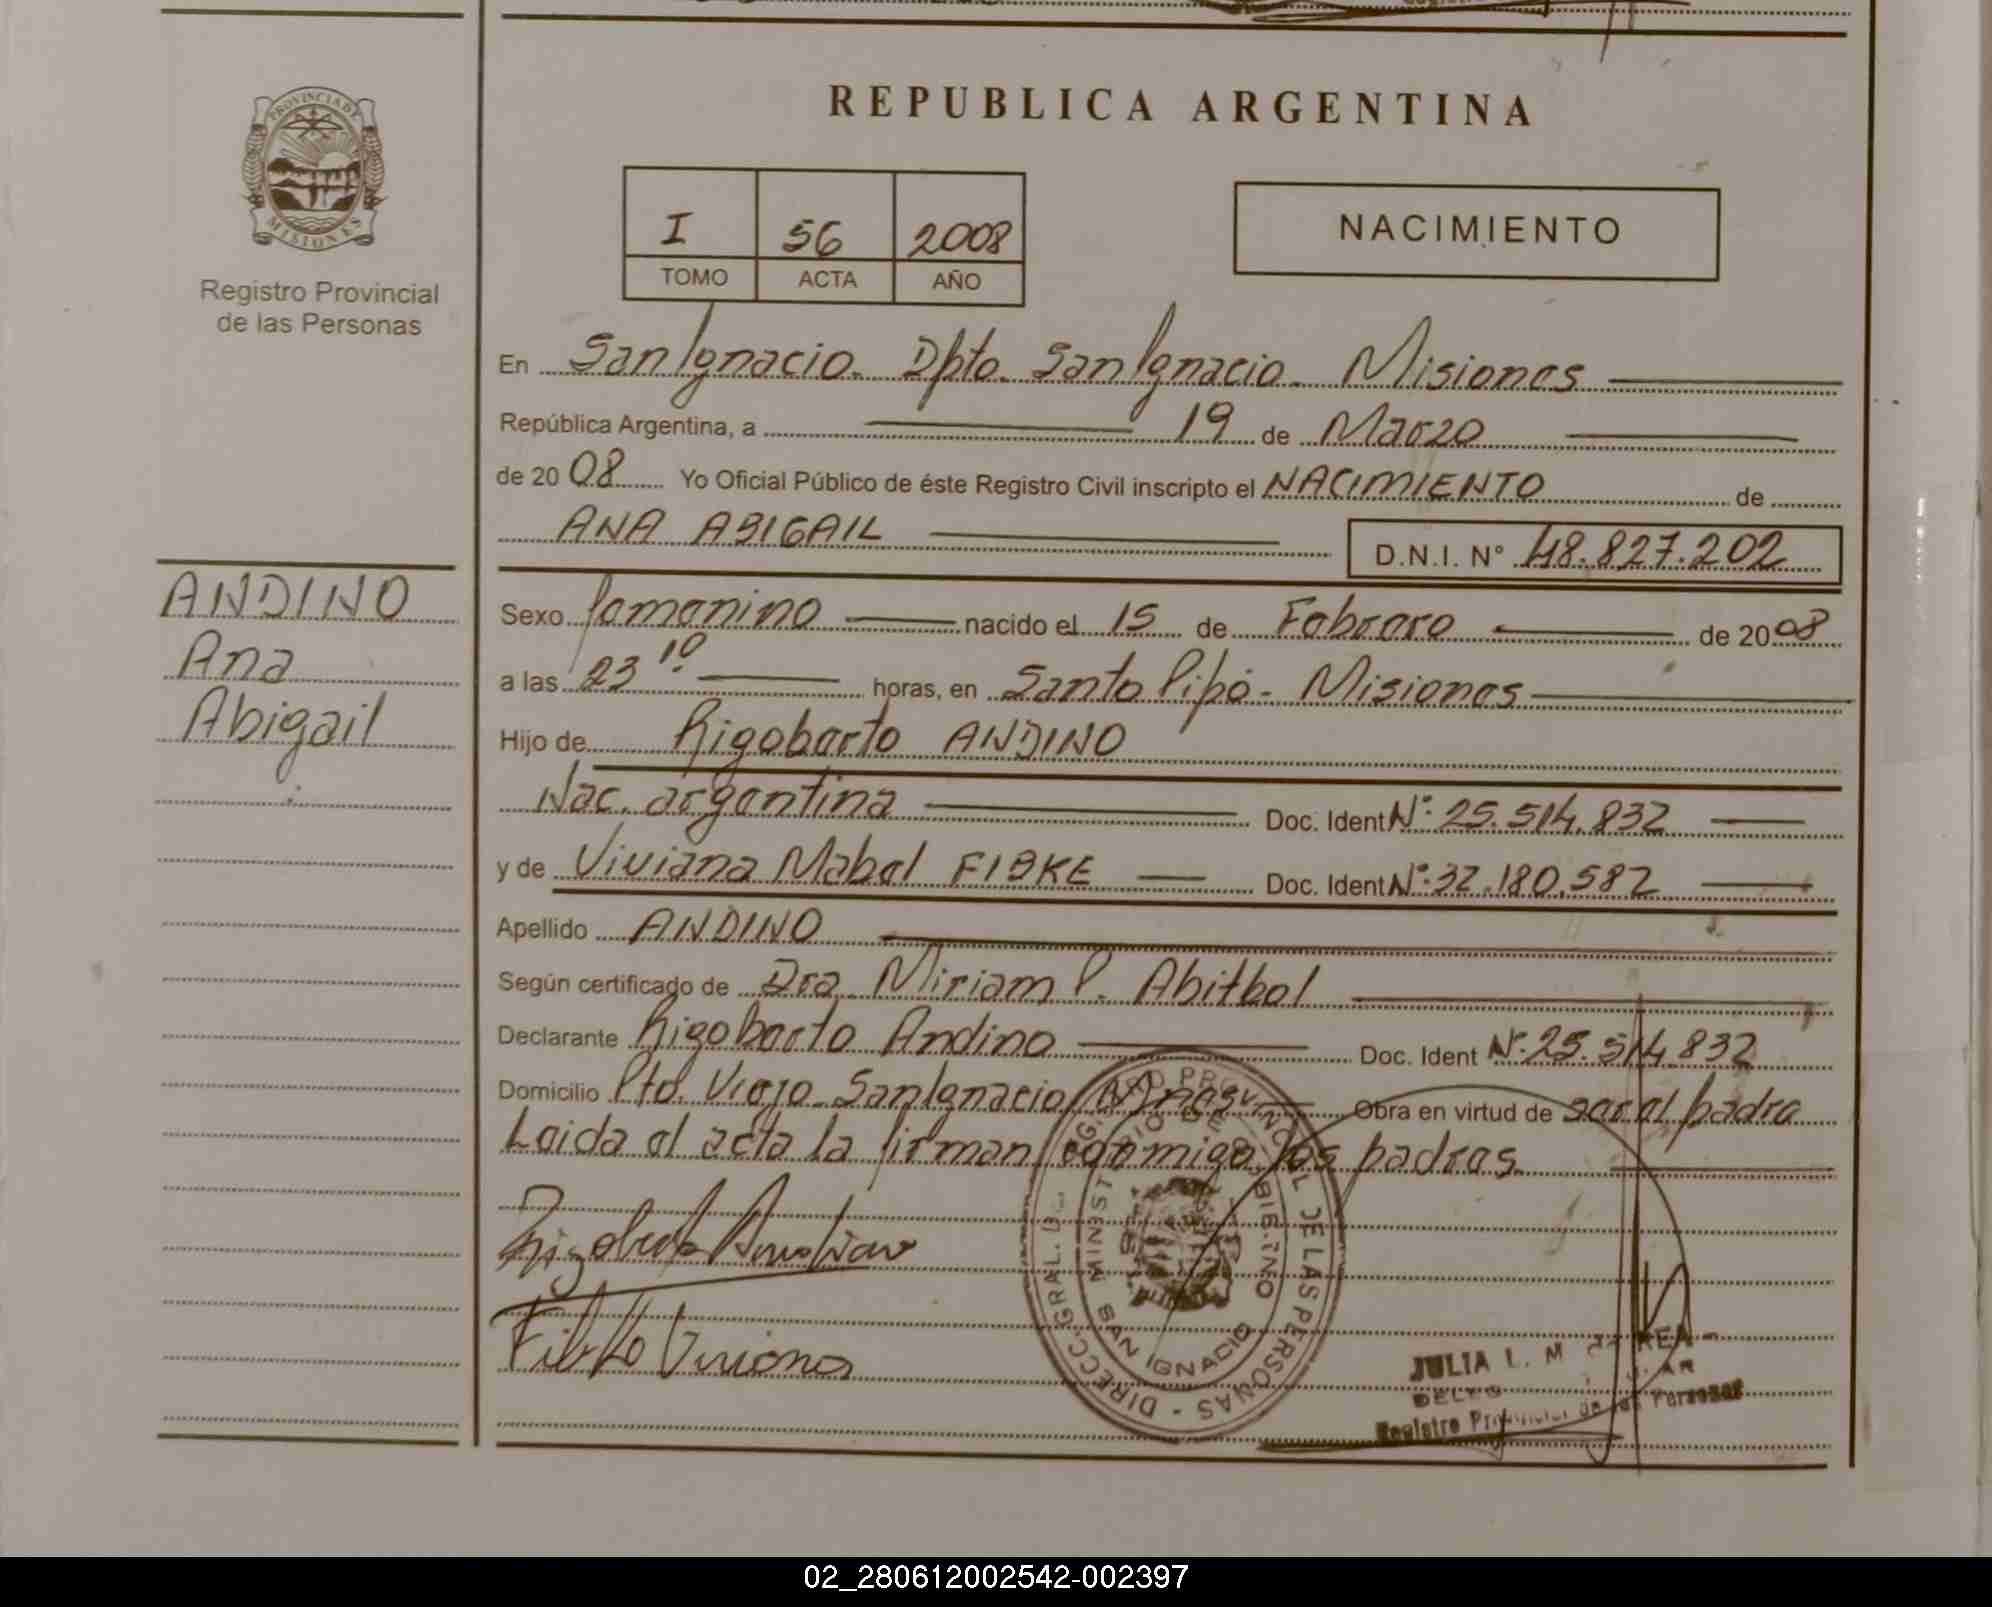 PROVINCIA DE
MISIONES
Registro Provincial
de las Personas
ANDINO
Ana
Abigail
REPUBLICA ARGENTINA
I 56 2008
TOMO ACTA AÑO
NACIMIENTO
En San Ignacio. Dpto. San Ignacio. Misiones
República Argentina, a 19 de Marzo
de 2008 Yo Oficial Público de éste Registro Civil inscripto el NACIMIENTO de
ANA ABIGAIL D.N.I. N° 48.827.202
Sexo femenino nacido el 15 de Febrero de 2008
a las 23 10 horas, en Santo Pipó - Misiones
Hijo de Rigoberto ANDINO
Nac. argentina Doc. Ident N°: 25.514.832
y de Viviana Mabel FIBKE Doc. Ident N°: 32.180.582
Apellido ANDINO
Según certificado de Dra. Miriam P. Abitbol
Declarante Rigoberto Andino Doc. Ident N°: 25.514.832
Domicilio Pto. Viejo San Ignacio Mnes Obra en virtud de ser el padre
Leida el acta la firman conmigo los padres.
Rigoberto Andino
Fibke Viviana
DIRECC. GRAL. DEL REGISTRO PROVINCIAL DE LAS PERSONAS -
MINISTERIO DE GOBIERNO
SAN IGNACIO
JULIA L. M
Registro Provincial de las Personas
02_280612002542-002397